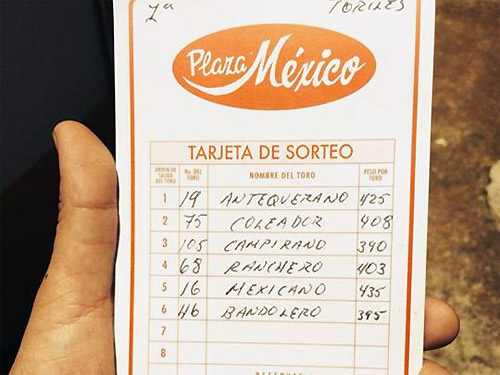 7a TORILES
Plaza México
TARJETA DE SORTEO
ORDEN DE SALIDA DEL TORO No. DEL TORO NOMBRE DEL TORO PESO POR TORO
1 19 ANTEQUERANO 425
2 75 COLEADOR 408
3 105 CAMPIRANO 390
4 68 RANCHERO 403
5 16 MEXICANO 435
6 46 BANDOLERO 395
7
8